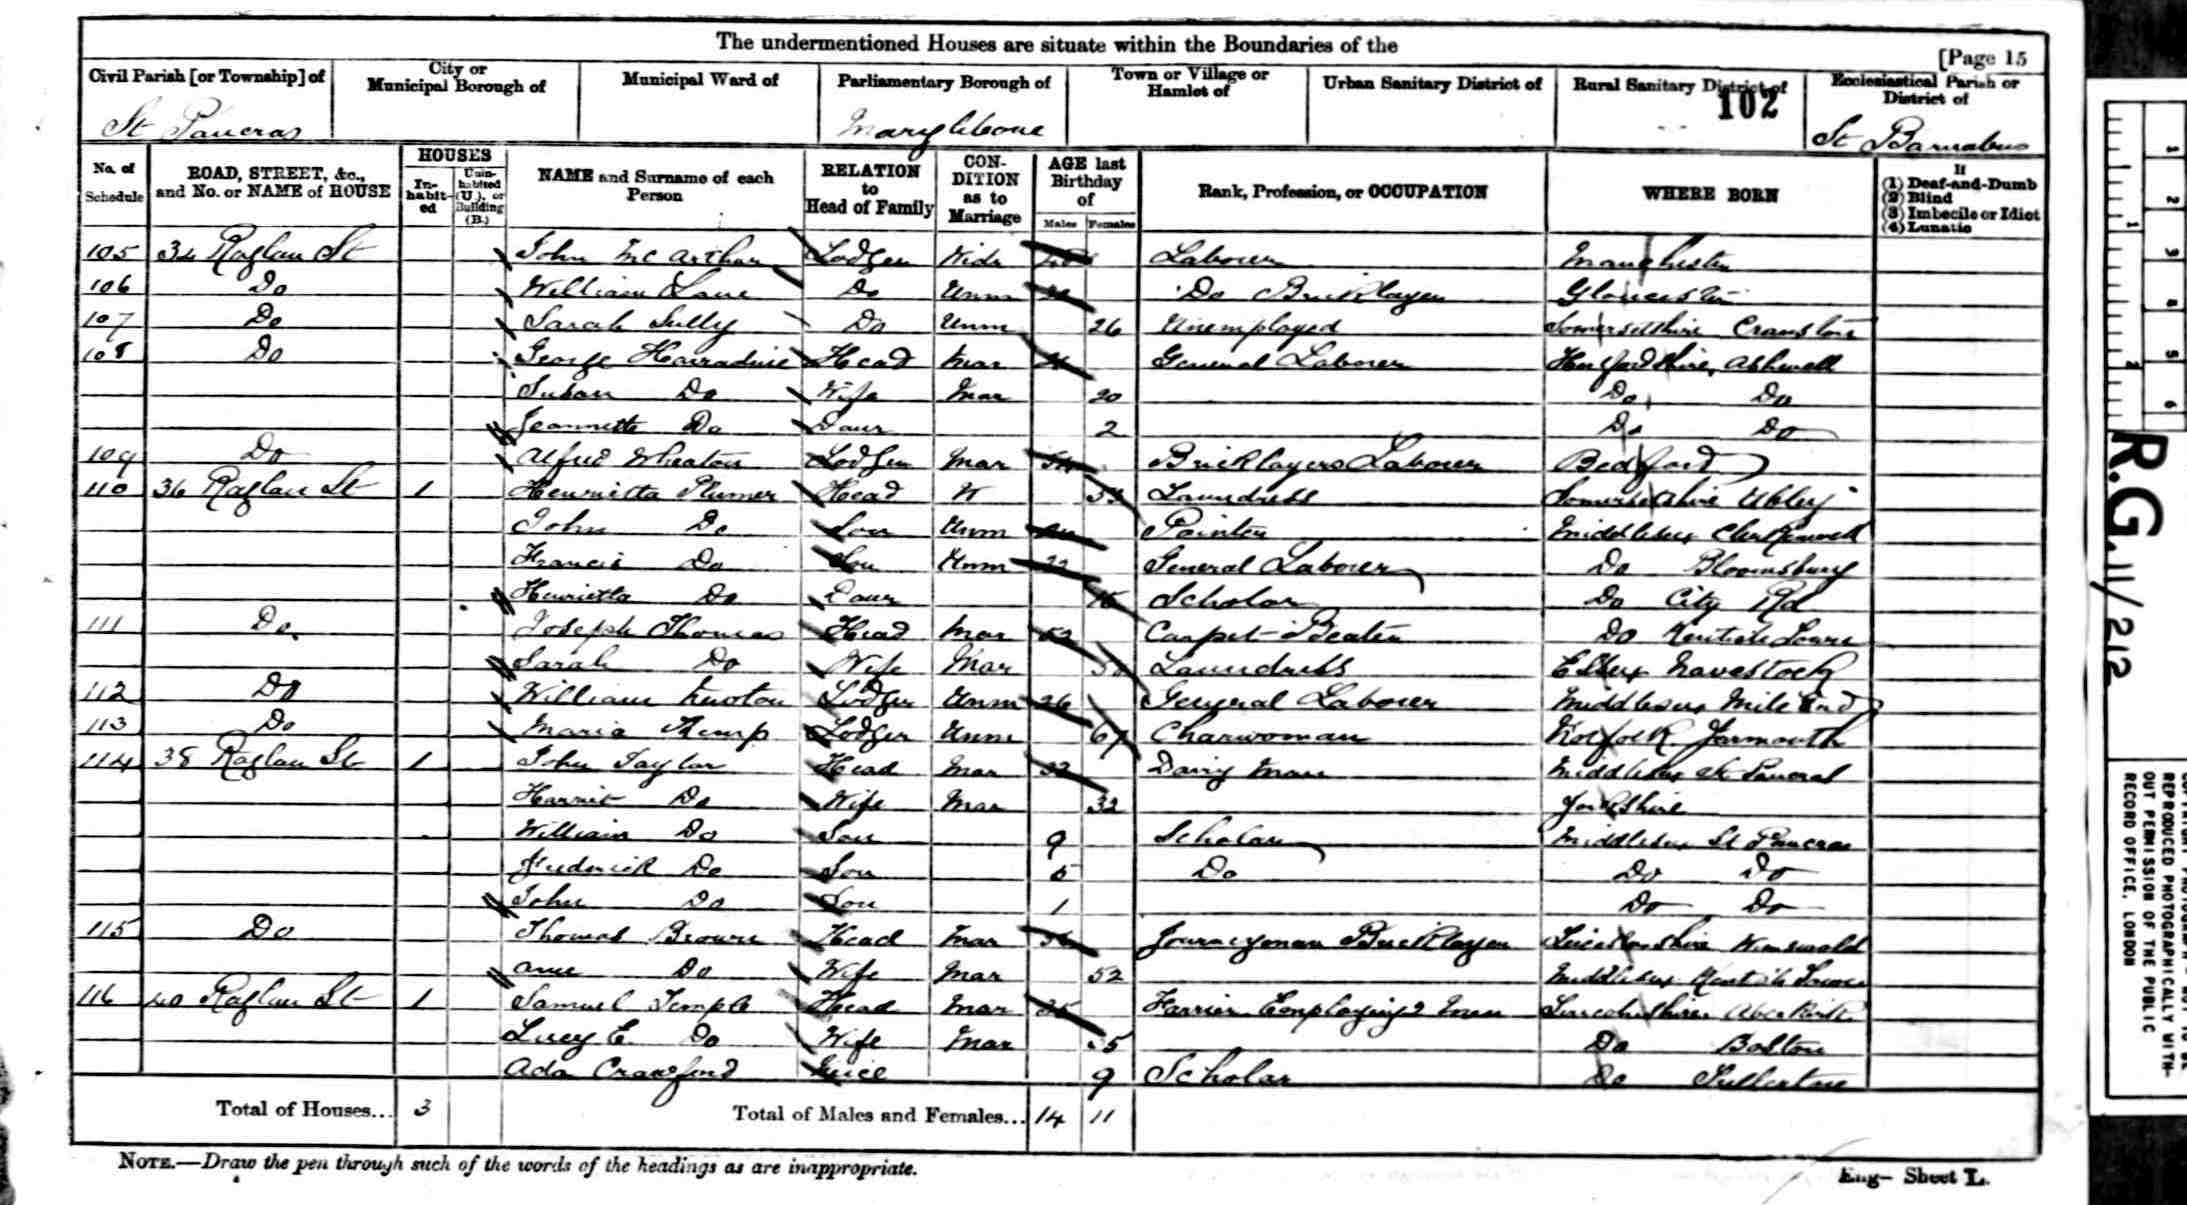 The undermentioned Houses are situate within the Boundaries of the
[Page 15
Civil Parish [or Township] of
City or Municipal Borough of
Municipal Ward of
Parliamentary Borough of
Town or Village or Hamlet of
Urban Sanitary District of
Rural Sanitary District of
Ecclesiastical Parish or District of
102
St Pancras Marylebone St Barnabas
No. of Schedule
ROAD, STREET, &c., and No. or NAME of HOUSE
HOUSES
In-habit-ed
Unin-habited (U.), or Building (B.)
NAME and Surname of each Person
RELATION to Head of Family
CON-DITION as to Marriage
AGE last Birthday of
Males Females
Rank, Profession, or OCCUPATION
WHERE BORN
If
(1) Deaf-and-Dumb
(2) Blind
(3) Imbecile or Idiot
(4) Lunatic
105 34 Raglan St John Mc Arthur Lodger Widr Laborer Manchester
106 Do William Lane Do Unm Do Bricklayer Gloucester
107 Do Sarah Sully Do Unm 26 Unemployed Somersetshire
108 Do George Harradine Head Mar General Laborer Hertfordshire, Ashwell
Susan Do Wife Mar 20 Do Do
Jeannette Do Daur 2 Do Do
109 Do Alfred Wheaton Lodger Mar Bricklayers Laborer Bedford
110 36 Raglan St 1 Henrietta Plumer Head W 53 Laundress Somersetshire Ubley
John Do Son Unm Painter Middlesex Clerkenwell
Francis Do Son Unm 22 General Laborer Do Bloomsbury
Henrietta Do Daur Scholar Do City Rd
111 Do Joseph Thomas Head Mar 52 Carpet Beater Do Kentish Town
Sarah Do Wife Mar Laundress Essex Navestock
112 Do William Lodger Unm 26 General Laborer Middlesex Mile End
113 Do Maria Kemp Lodger Unm 67 Charwoman Norfolk Yarmouth
114 38 Raglan St 1 John Taylor Head Mar 32 Dairy Man Middlesex St Pancras
Harriet Do Wife Mar 32 Yorkshire
William Do Son 9 Scholar Middlesex St Pancras
Frederick Do Son 5 Do Do Do
John Do Son 1 Do Do
115 Do Thomas Brown Head Mar Journeyman Bricklayer Leicestershire
Ann Do Wife Mar 52 Middlesex Kentish Town
116 40 Raglan St 1 Samuel Temple Head Mar 35 Farrier Employing 2 Men Lincolnshire
Lucy E. Do Wife Mar 35 Do Boston
Ada Crawford Niece 9 Scholar Do
Total of Houses... 3 Total of Males and Females... 14 11
NOTE.—Draw the pen through such of the words of the headings as are inappropriate.
Eng— Sheet L.
R.G. 11/212
REPRODUCED PHOTOGRAPHICALLY WITH-
OUT PERMISSION OF THE PUBLIC
RECORD OFFICE, LONDON